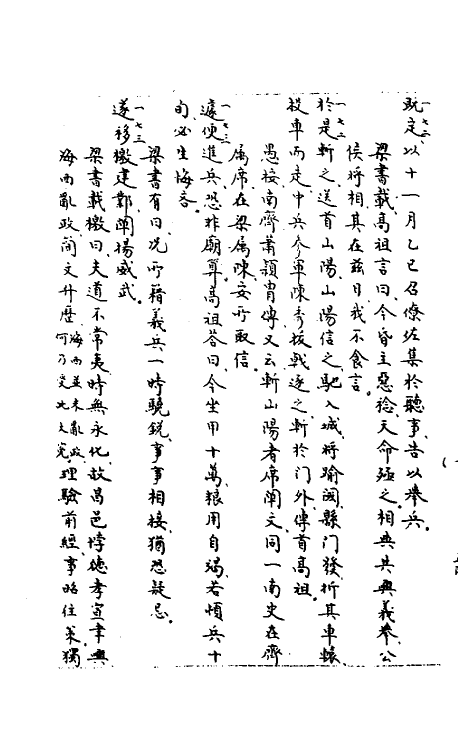 一七二
既定以十一月乙巳召僚佐集於聽事告以舉兵
梁書載高祖言曰今昏主惡稔天命殛之相與共興義舉公
侯將相其在茲日我不食言
一七二
於是斬之送首山陽山陽信之馳入城將踰閾縣門發折其車轅
投車而走中兵參軍陳秀拔戟逐之斬於門外傳首高祖
愚按南齊蕭穎胄傳又云斬山陽者席闡文同一南史在齊
属席在梁属陳安所取信
一七三
遽便進兵恐非廟算高祖答曰今坐甲十萬粮用自竭若頓兵十
旬必生悔吝
梁書有曰况所藉義兵一時驍銳事事相接猶恐疑怠
一七三
遂移檄建鄴闡揚威武
梁書載檄曰夫道不常夷時無永化故昌邑悖德孝宣聿興
海西亂政簡文升歷海西並未亂政何乃受此大冤理驗前經事昭往策獨